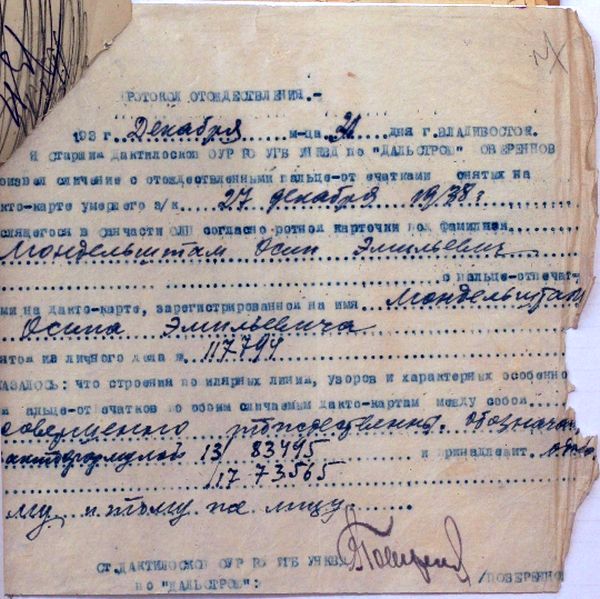 РОТОКОЛ ОТОЖДЕСТВЛЕНИЯ.-
193 г. Декабря м-ца 31 дня г. ВЛАДИВОСТОК.
Я старший дактилоскоп ОУР РО УГБ УНКВД по "ДАЛЬСТРОЮ" ПОВЕРЕННОВ
оизвел сличение с отождествленными пальце-отпечатками снятых на
акто-карте умершего з/к. 27 декабря 1938 г
слящегося в санчасти согласно ротной карточки под фамилией
Мондельштам Осип Эмильевич
с пальце-отпечат-
ми на дакто-карте, зарегистрированной на имя Мондельштам
Осипа Эмильевича
ятой из личного дела № 117794
КАЗАЛОСЬ: что строения папилярных линий, узоров и характерных особенно
й пальце-отпечатков по обоим сличаемым дакто-картам между собой
совершенно тождественны. Обозначен
дактоформулой 13/ 83495 и принадлежит одно
/17 73565
му и тому же лицу.
СТ. ДАКТИЛОСКОП ОУР РО УГБ УНКВД
по "ДАЛЬСТРОЮ": /ПОВЕРЕННО